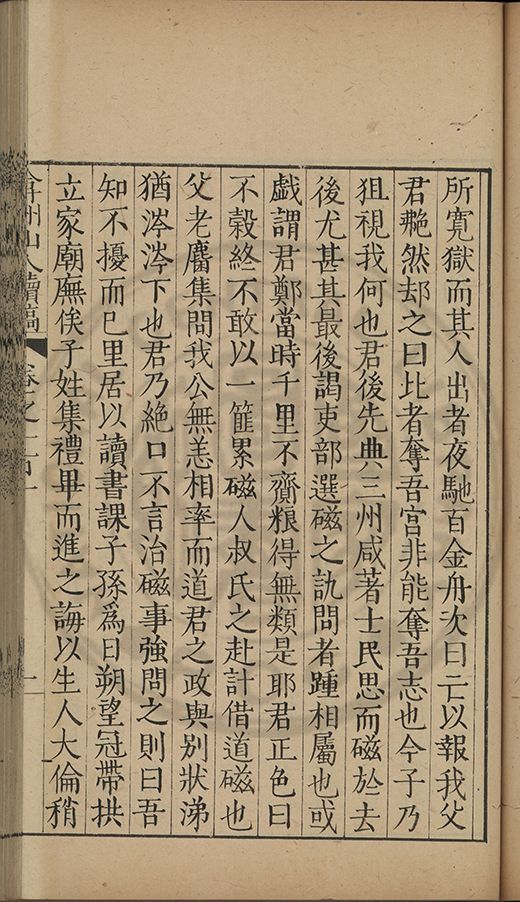 所寬獄而其人出者夜馳百金舟次曰亡以報我父
君艴然却之曰比者奪吾官非能奪吾志也今子乃
狙視我何也君後先典三州咸著士民思而磁於去
後尤甚其最後謁吏部選磁之訊問者踵相屬也或
戲謂君鄭當時千里不齎粮得無類是耶君正色曰
不穀終不敢以一篚累磁人叔氏之赴計借道磁也
父老麕集問我公無恙相率而道君之政與別狀涕
猶涔涔下也君乃絶口不言治磁事強問之則曰吾
知不擾而已里居以讀書課子孫爲日朔望冠帶拱
立家廟廡俟子姓集禮畢而進之誨以生人大倫稍
弇州山人續稿 卷之一百